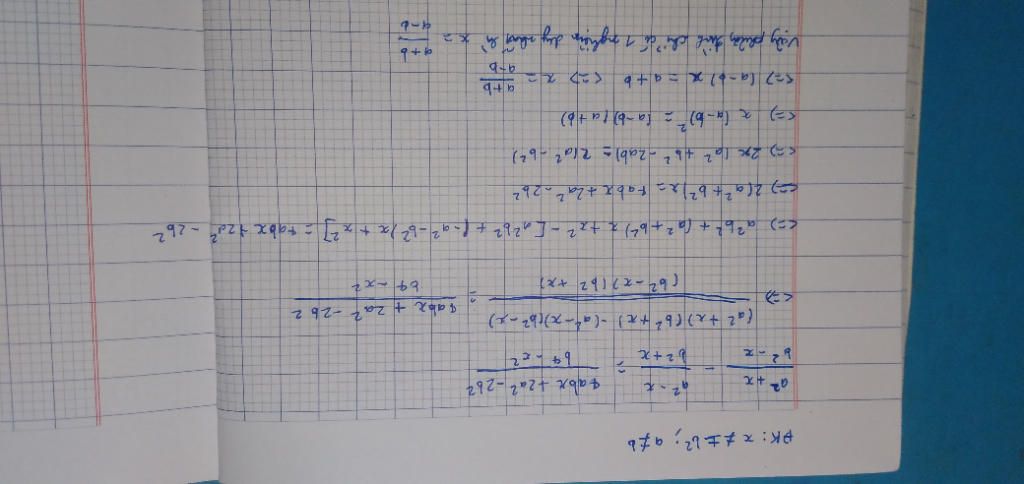 ĐK: x ≠ ±b²; a ≠ b
(a² + x)/(b² - x) - (a² - x)/(b² + x) = (4abx + 2a² - 2b²)/(b4 - x²)
<=> ((a² + x)(b² + x) - (a² - x)(b² - x))/((b² - x)(b² + x)) = (4abx + 2a² - 2b²)/(b4 - x²)
<=> a²b² + (a² + b²)x + x² - [a²b² + (-a² - b²)x + x²] = 4abx + 2a² - 2b²
<=> 2(a² + b²)x = 4abx + 2a² - 2b²
<=> 2x(a² + b² - 2ab) = 2(a² - b²)
<=> x(a - b)² = (a - b)(a + b)
<=> (a - b)x = a + b <=> x = (a+b)/(a-b)
Vậy phương trình chỉ có 1 nghiệm duy nhất là x = (a+b)/(a-b)